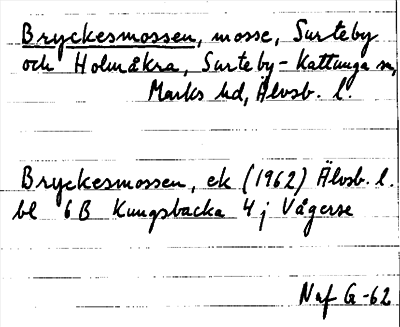 Bryckesmossen, mosse, Surteby
och Holmåkra, Surteby-Kattunga sn,
Marks hd, Älvsb. l.
Bryckesmossen, ek (1962) Älvsb. l.
bl 6B Kungsbacka 4j Vågerse
Naf G-62